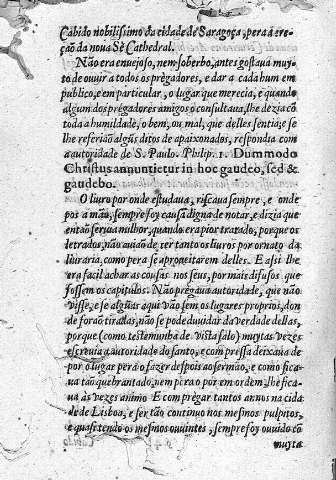 Cabido nobilissimo da cidade de Saragoça, pera a ere-
ção da noua Sè Cathedral.
Não era enuejoso, nem soberbo, antes gostaua muy-
to de ouuir a todos os prègadores, e dar a cada hum em
publico, e em particular, o lugar que merecia, e quando
algum dos prégadores amigos o consultaua, lhe dezia cō
toda a humildade, o bem, ou mal, que delles sentia; e se
lhe referião algūs ditos de apaixonados, respondia com
a autoridade de S. Paulo. Philip. 1. Dummodo
Christus annuntietur in hoc gaudeo, sed &
gaudebo.
O liuro por onde estudaua, riscaua sempre, e onde
pos a mão, sempre foy causa digna de notar, e dizia que
então seruia milhor, quando era pior tratado, porque os
letrados, não auião de ter tanto os liuros por ornato da
liuraria, como pera se aproueitarem delles. E assi lhe
era facil achar as cousas nos seus, por mais difusos que
fossem os capitulos. Não prègaua autoridade, que não
visse, e se algūas aqui vão sem os lugares proprios, don
de forão tiradas, não se pode duuidar da verdade dellas,
porque (como testemunha de vista falo) muytas vezes
escreuia a autoridade do santo, e com pressa deixaua de
por o lugar pera o fazer despois ao sermão, e como fica-
ua tão quebrantado, nem pera o por em ordem, lhe fica-
ua às vezes animo E com prègar tantos annos na cida
de de Lisboa, e ser tão continuo nos mesmos pulpitos,
e quasi tendo os mesmos ouuintes, sempre foy ouuido cō
muyta